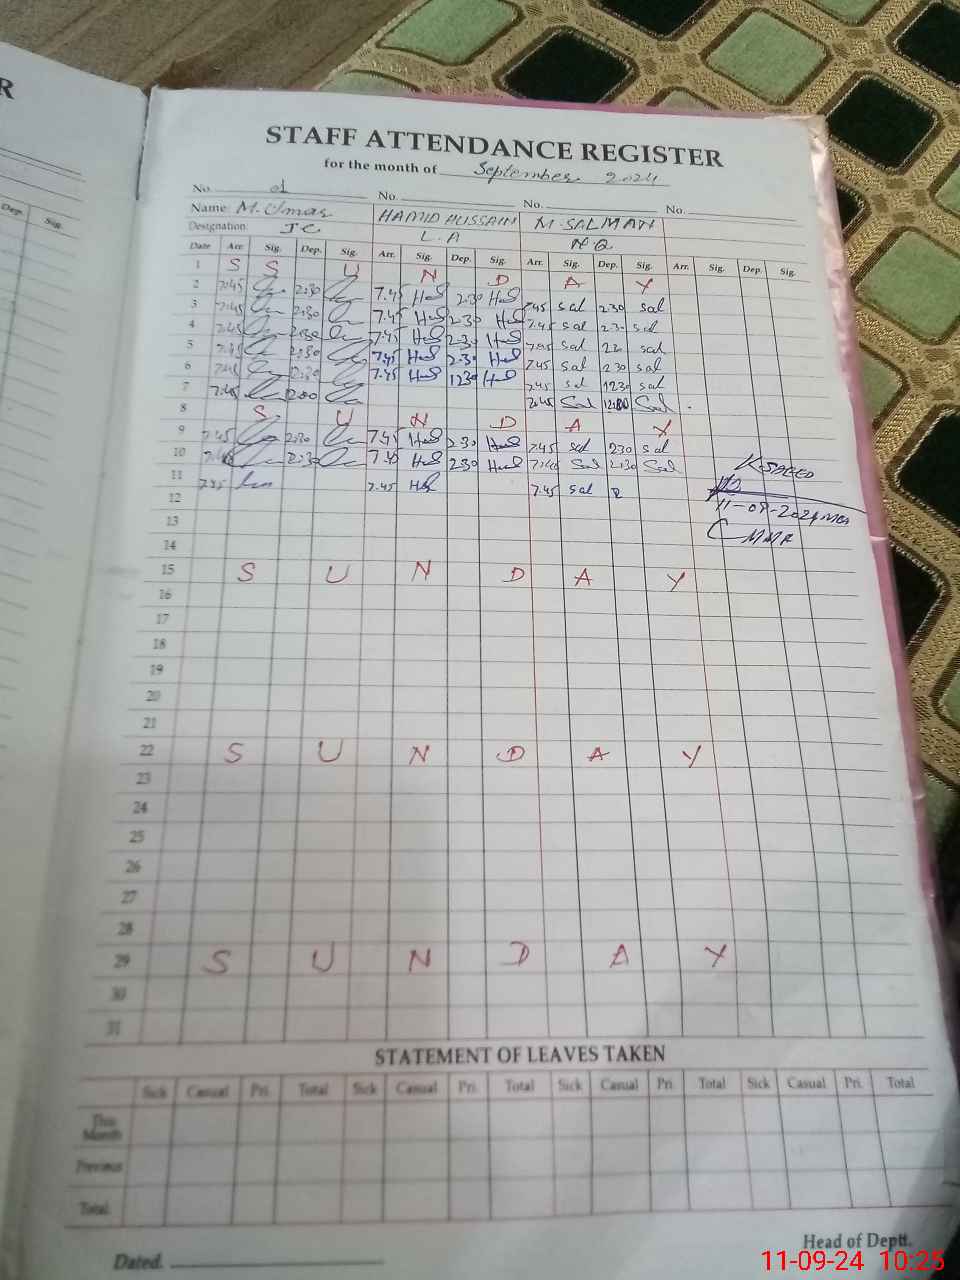 R
Dep. Sig.
STAFF ATTENDANCE REGISTER
for the month of September 2024
No. 01 No. No. No.
Name: M. Umar HAMID HUSSAIN M. SALMAN
Designation: JC L.A N.Q
Date Arr. Sig. Dep. Sig. Arr. Sig. Dep. Sig. Arr. Sig. Dep. Sig. Arr. Sig. Dep. Sig.
1 S S U N D A Y
2 7:45 2:30 7.45 2.30 7.45 sal 2.30 sal
3 7:45 2:30 7.45 2.30 7.45 sal 2.30 sal
4 7:45 2:30 7.45 2.30 7.45 sal sal
5 7:45 2:30 7.45 2.30 7.45 sal 2.30 sal
6 7:45 7.45 1230 7.45 sal 1230 sal
7 7:45 Sal Sal
8 S U N D A Y
9 7.45 2:30 7.45 2.30 7.45 sal 2.30 sal
10 2:30 7.45 2.30 Sal 2:30 Sal
11 7.45 7.45 7.45 sal
K-SAEED
12
11-09-2024
13
14
15 S U N D A Y
16
17
18
19
20
21
22 S U N D A Y
23
24
25
26
27
28
29 S U N D A Y
30
31
STATEMENT OF LEAVES TAKEN
Sick Casual Pri. Total Sick Casual Pri. Total Sick Casual Pri. Total Sick Casual Pri. Total
This Month
Previous
Total
Dated. Head of Deptt.
11-09-24 10:25